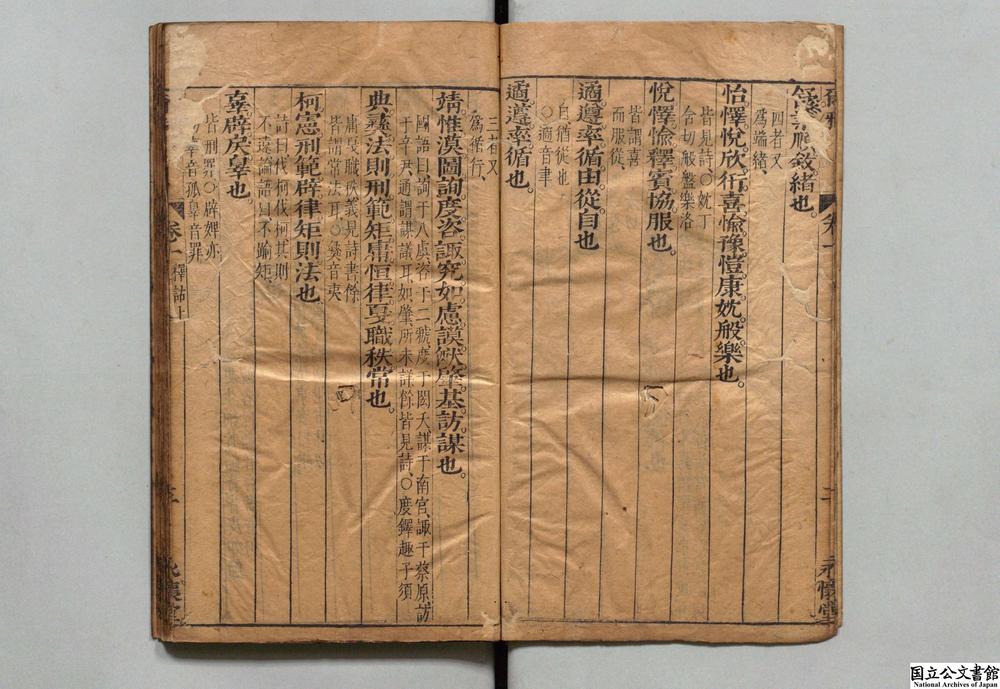 爾雅 卷一 二 永懷堂
舒業順敘緒也。
四者又
爲端緒、
怡懌悅欣衎喜愉豫愷康妉般樂也。
皆見詩、〇妉丁
含切般盤樂洛
悅懌愉釋賓協服也。
皆謂喜
而服從、
遹遵率循由從自也
自猶從也
〇遹音聿
遹遵率循也。
三者又
爲循行、
靖惟漠圖詢度咨諏究如慮謨猷肇基訪謀也。
國語曰詢于八虞咨于二虢度于閎夭謀于南宮諏于蔡原訪
于辛尹通謂謀議耳如肇所未詳餘皆見詩、〇度鐸趣子須
典彝法則刑範矩庸恒律戛職秩常也。
庸戛職秩義見詩書餘
皆謂常法耳〇彝音夷
柯憲刑範辟律矩則法也
詩曰伐柯伐柯其則
不遠論語曰不踰矩、
辜辟戾辠也
皆刑罪〇辟婢亦
切辜音孤辠音罪
卷一 釋詁上 三 永懷堂
国立公文書館
National Archives of Japan